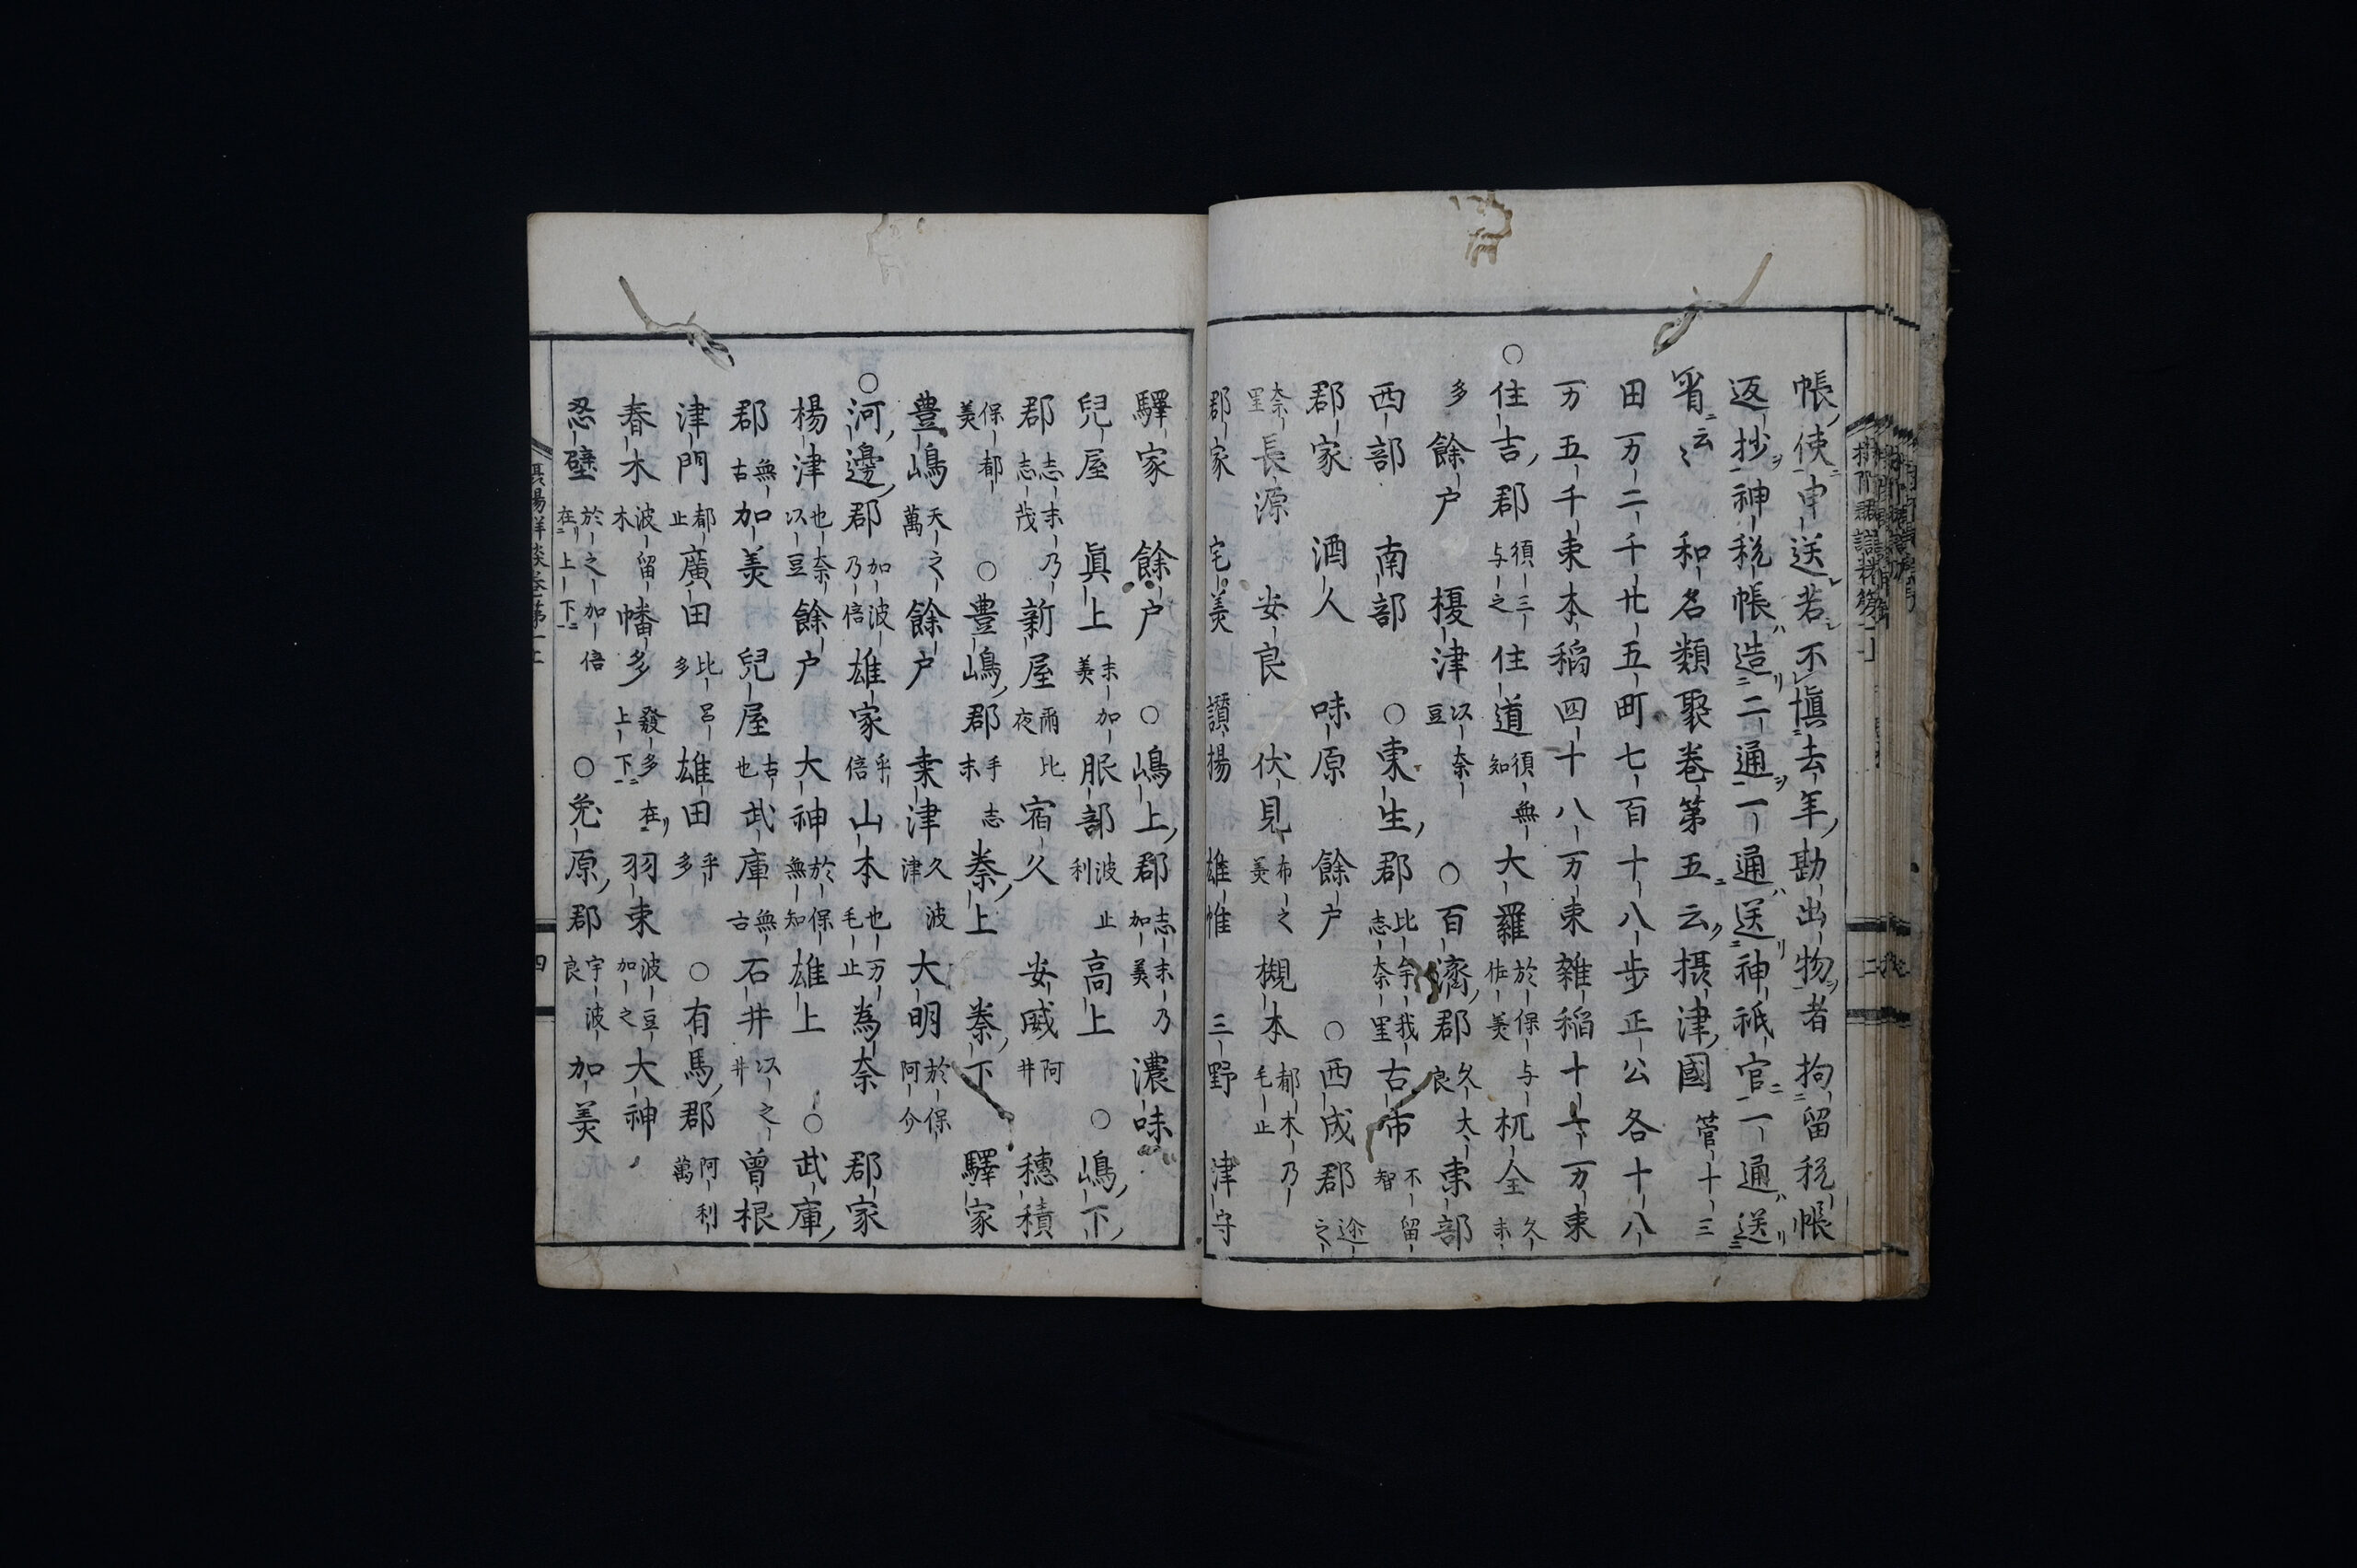 帳使申送若不愼去年勘出物者拘留税帳
返抄神税帳造二通一通送神祇官一通送
省云〻 和名類聚巻第五云摂津國管十三
田万二千廿五町七百十八歩正公各十八
万五千束本稲四十八万束雑稲十一万束
○住吉郡須三与之住道須無知大羅於保与佐美杭全久末
多餘戸 榎津以奈豆 ○百濟郡久太良東部
西部 南部 ○東生郡比牟我志奈里古市不留智
郡家 酒人 味原 餘戸 ○西成郡
奈里長源 安良 伏見布之美槻本都木乃毛止
郡家 宅美 讃楊 雄惟 三野 津守
驛家 餘戸 ○嶋上郡志末乃加美濃味
兒屋 眞上末加美服部波止利高上 ○嶋下
郡志末乃志茂新屋爾比夜宿久 安威阿井 穗積
保都美 ○豊嶋郡手志末秦上 秦下 驛家
豊嶋天之萬餘戸 桒津久波津大明於保阿分
○河邊郡加波乃倍雄家乎倍山本也万毛止為奈 郡家
楊津也奈以豆餘戸 大神於保無知雄上 ○武庫
郡無古加美 兒屋古也武庫無古石井以之井曽根
津門都止廣田比呂多雄田乎多 ○有馬郡阿利萬
春木波留木幡多發多上下在羽束波豆加之大神
忍壁於之加倍在上下 ○兎原郡宇波良加美
四